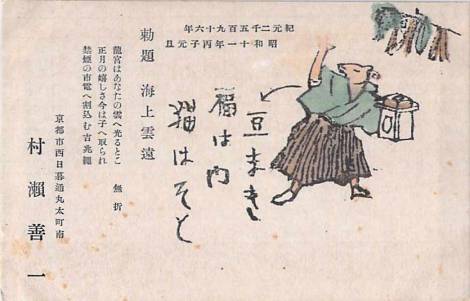 紀元二千五百九十六年
昭和十一年丙子元旦
豆まき
福は内
猫はそと
勅題　海上雲遠
龍宮はあなたの雲へ光るとこ　無折
正月の嬉しさ今は子へ取られ
禁煙の市電へ割込む吉兆繩
京都市西日暮通丸太町南
村瀬善一